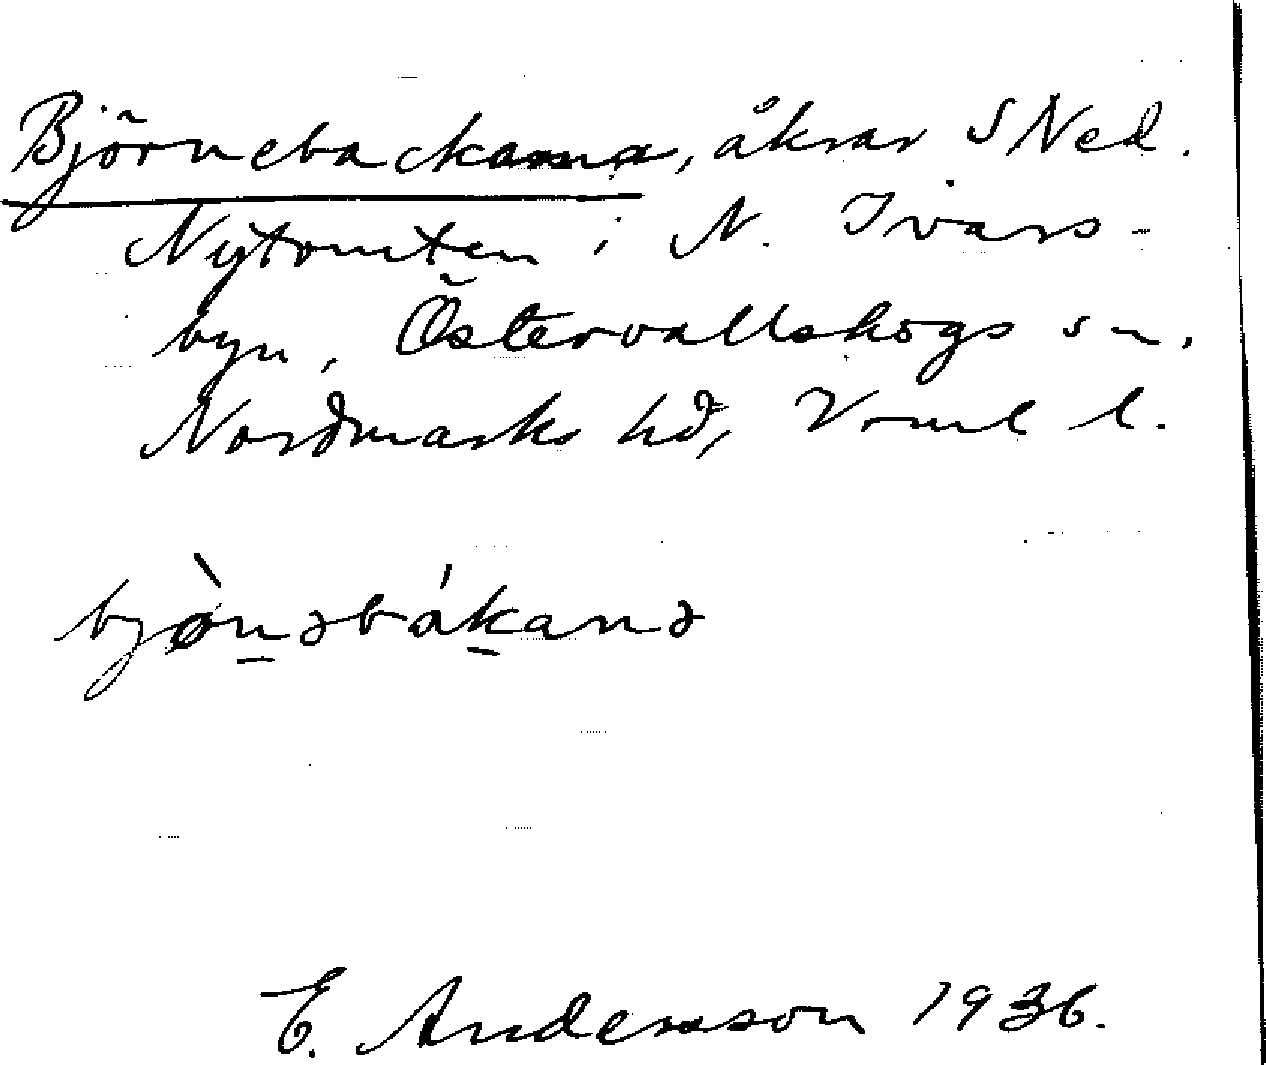 Björnebackarna, åkrar S Ned.
Nytomten i N. Ivars-
byn, Östervallskogs sn,
Nordmarks hd, Vrml l.
bjø̀n̠əbák̠anə
E. Andersson 1936.